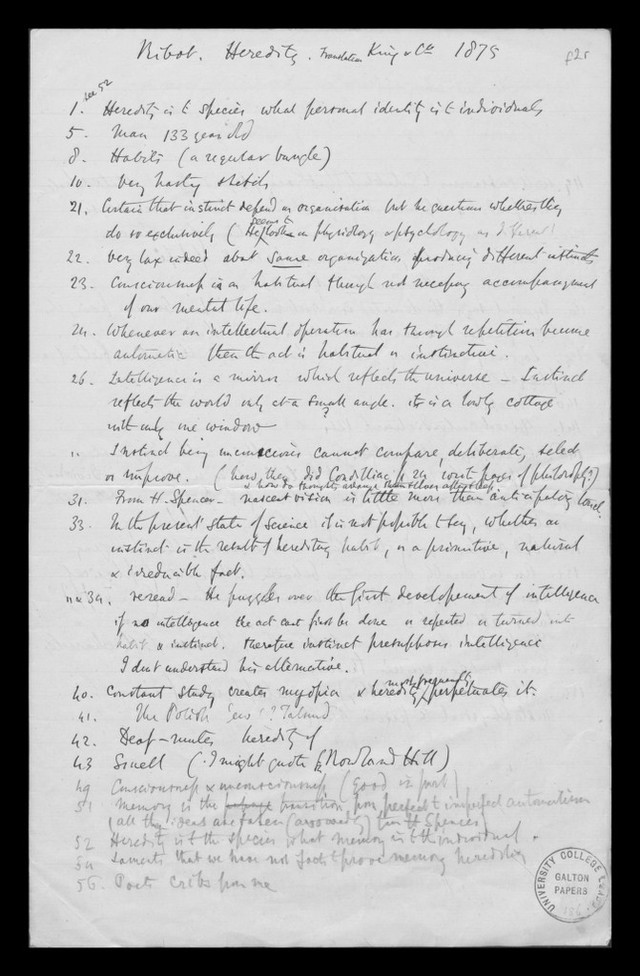 Ribot. Heredity. Translation King & Co 1875
f2r
see 52
1. Heredity is to species what personal identity is to individuals
5. Man 133 years old
8. Habits (a regular bungle)
10. Very hasty sketch
21. Certain that instinct depends on organisation but he questions whether they
do so exclusively (He seems to look on physiology & psychology as different
22. Very lax indeed about same organization producing different instincts
23. Consciousness is an habitual though not necessary accompaniment
of our mental life.
24. Whenever an intellectual operation has through repetition become
automatic then the act is habitual or instinctive.
26. Intelligence is a mirror which reflects the universe – Instinct
reflects the world only at a small angle. it is a lowly cottage
with only one window
" Instinct being unconscious cannot compare, deliberate, select
or improve. (how, then did Condillac 24 pages of philosophy?)
& how do thoughts arrange themselves
31. From H. Spencer – nascent vision is little more than anticipatory touch.
33. In the present state of science it is not possible to say, whether an
instinct is the result of hereditary habit, or a primitive, natural
& irreducible fact.
" & 34. reread – He puzzles over the first developement of intelligence
if no intelligence the act cant first be done or repeated or turned into
habit & instinct. therefore instinct presupposes intelligence
I dont understand his alternative.
40. Constant study creates myopia & heredity most frequently perpetuates it.
41. The Polish Jews & Talmud
42. Deaf-mutes heredity of
43 Smell (I might quote Rowland Hill)
49 Consciousness & unconsciousness (good in part)
51 Memory is the transition from perfect to imperfect automatism
(all the ideas are taken (avowedly) from H Spencer)
52 Heredity is to the species what memory is to the individual.
54 Laments that we have not facts to prove memory hereditary
56. Poets cribs from me
UNIVERSITY COLLEGE
GALTON
PAPERS